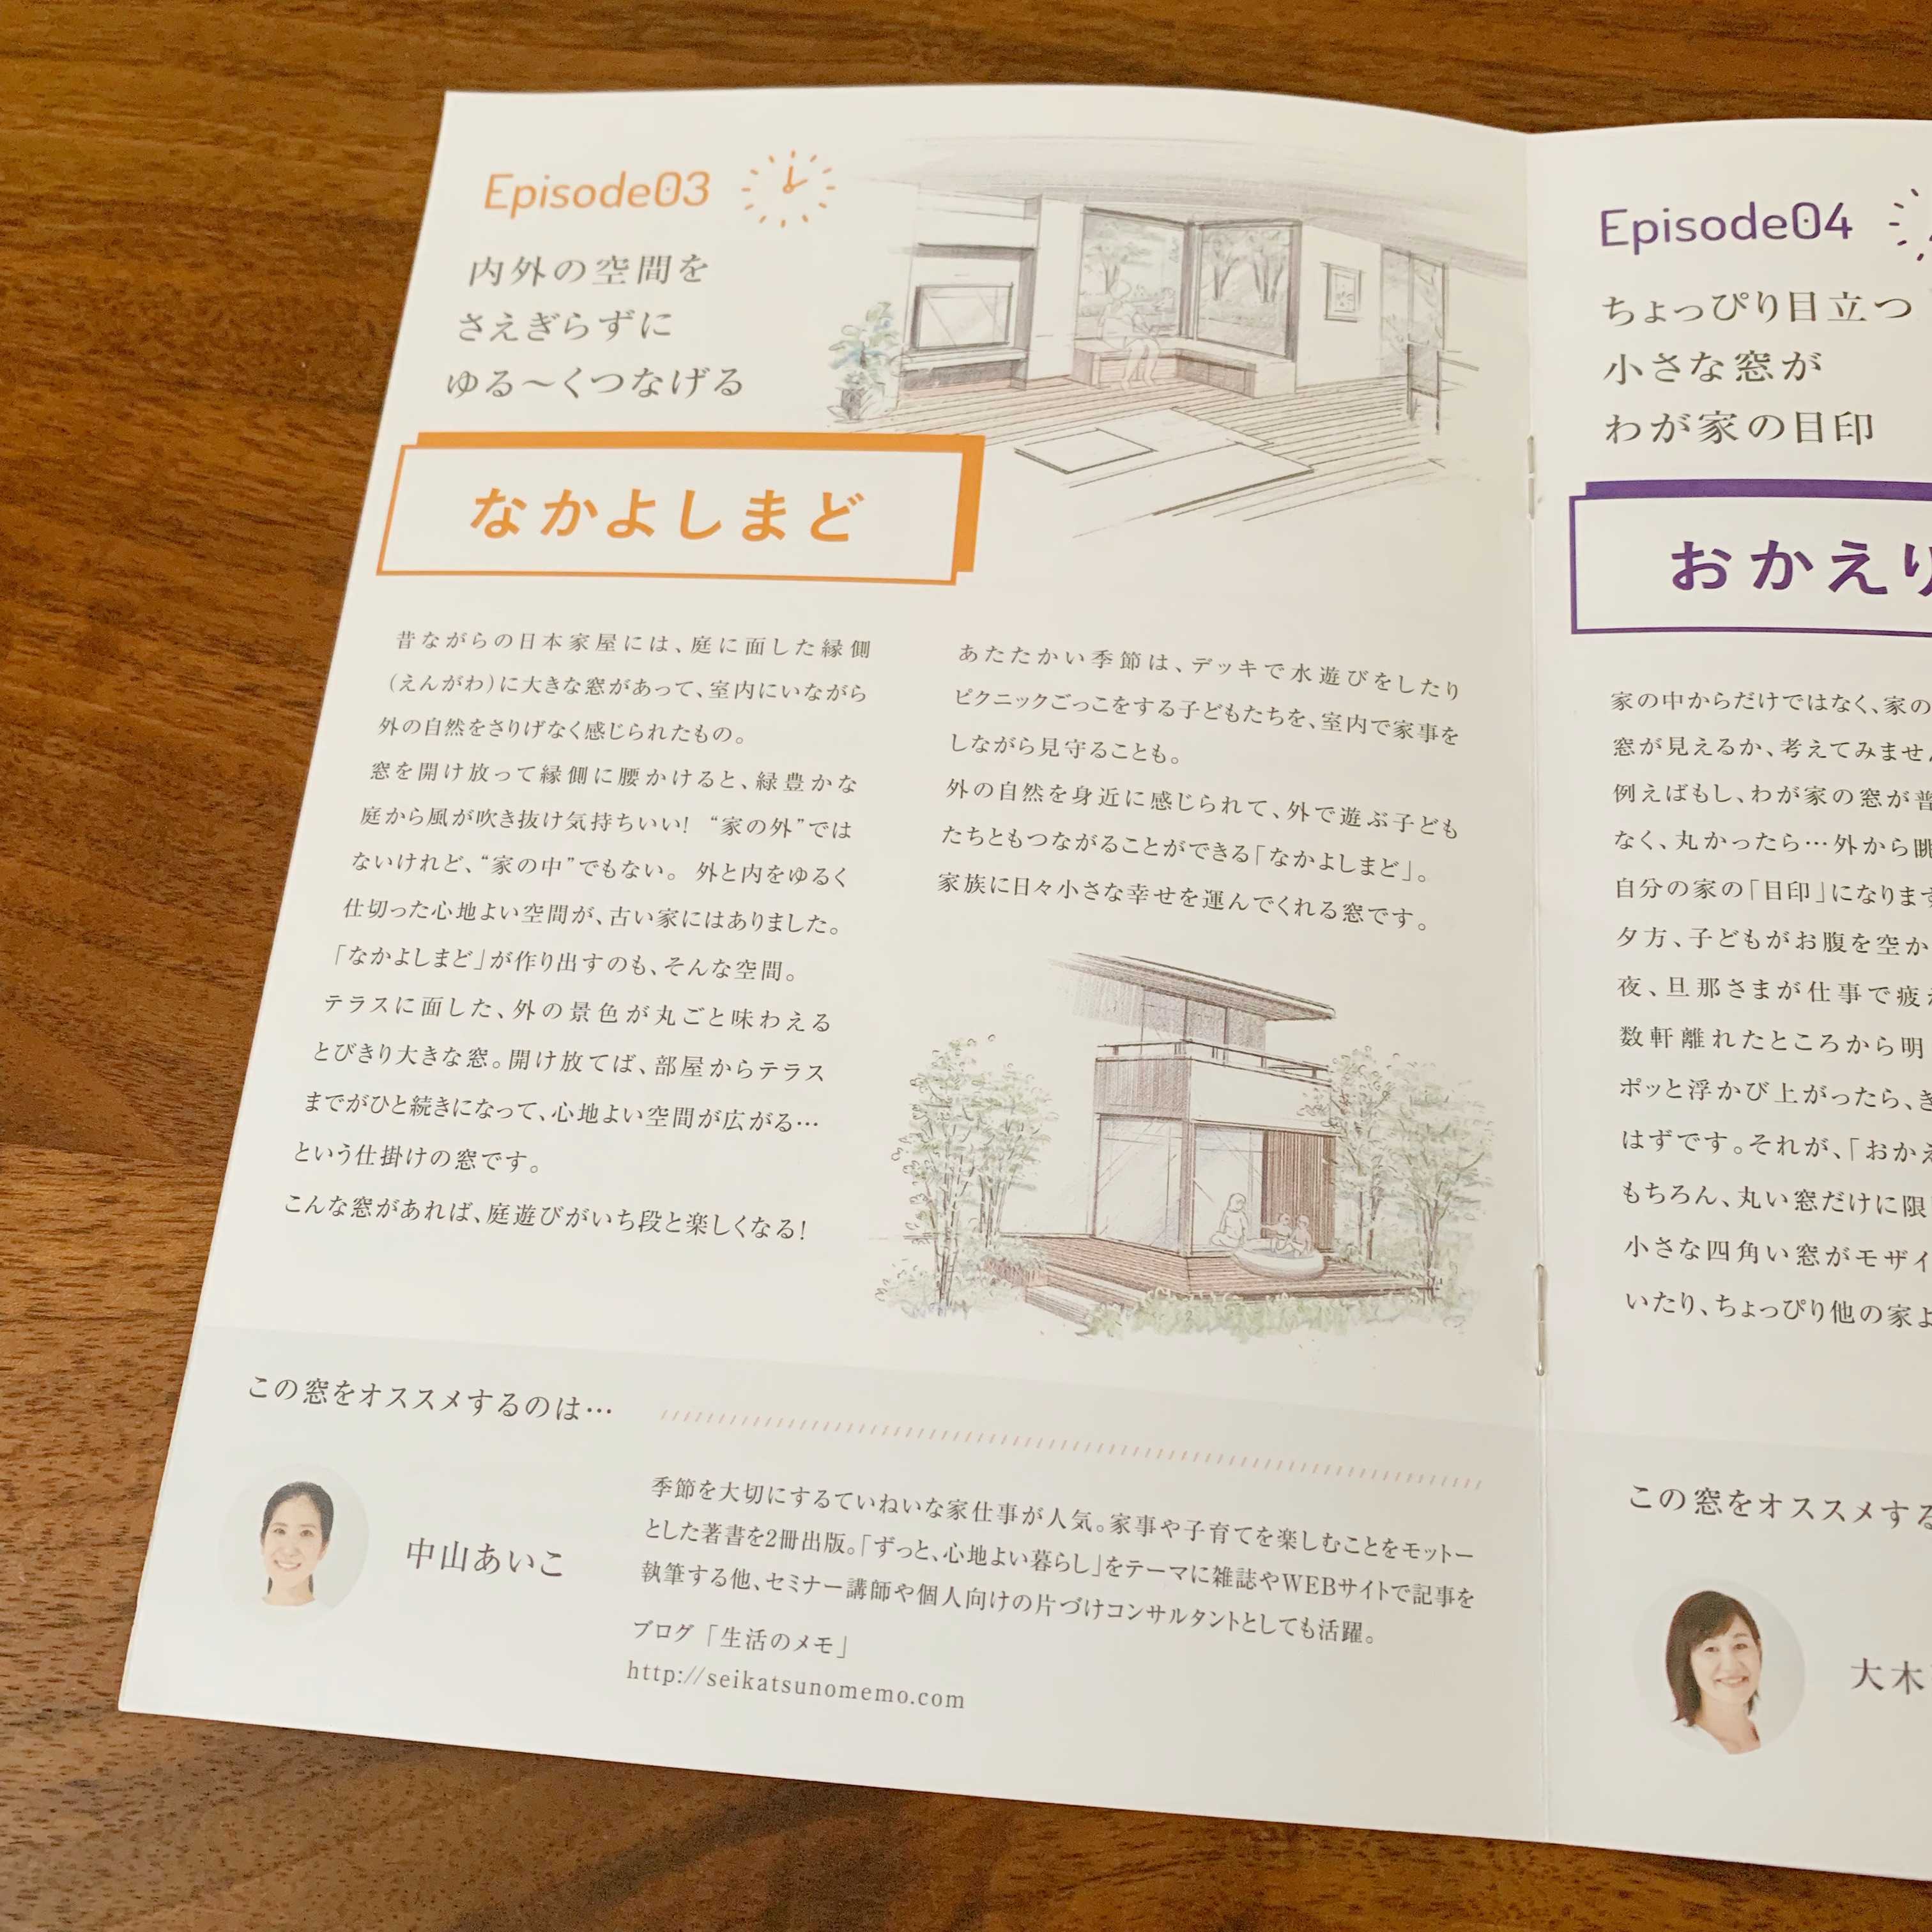 Episode03
内外の空間を
さえぎらずに
ゆる〜くつなげる
なかよしまど
昔ながらの日本家屋には、庭に面した縁側
(えんがわ)に大きな窓があって、室内にいながら
外の自然をさりげなく感じられたもの。
窓を開け放って縁側に腰かけると、緑豊かな
庭から風が吹き抜け気持ちいい! “家の外”では
ないけれど、“家の中”でもない。 外と内をゆるく
仕切った心地よい空間が、古い家にはありました。
「なかよしまど」が作り出すのも、そんな空間。
テラスに面した、外の景色が丸ごと味わえる
とびきり大きな窓。開け放てば、部屋からテラス
までがひと続きになって、心地よい空間が広がる…
という仕掛けの窓です。
こんな窓があれば、庭遊びがいち段と楽しくなる!
あたたかい季節は、デッキで水遊びをしたり
ピクニックごっこをする子どもたちを、室内で家事を
しながら見守ることも。
外の自然を身近に感じられて、外で遊ぶ子ども
たちともつながることができる「なかよしまど」。
家族に日々小さな幸せを運んでくれる窓です。
この窓をオススメするのは…
中山あいこ
季節を大切にするていねいな家仕事が人気。家事や子育てを楽しむことをモットー
とした著書を2冊出版。「ずっと、心地よい暮らし」をテーマに雑誌やWEBサイトで記事を
執筆する他、セミナー講師や個人向けの片づけコンサルタントとしても活躍。
ブログ「生活のメモ」
http://seikatsunomemo.com
Episode04
ちょっぴり目立つ
小さな窓が
わが家の目印
おかえり
家の中からだけではなく、家の
窓が見えるか、考えてみませ
例えばもし、わが家の窓が普
なく、丸かったら…外から眺
自分の家の「目印」になります
夕方、子どもがお腹を空か
夜、旦那さまが仕事で疲
数軒離れたところから明
ポッと浮かび上がったら、き
はずです。それが、「おかえ
もちろん、丸い窓だけに限
小さな四角い窓がモザイ
いたり、ちょっぴり他の家よ
この窓をオススメする
大木